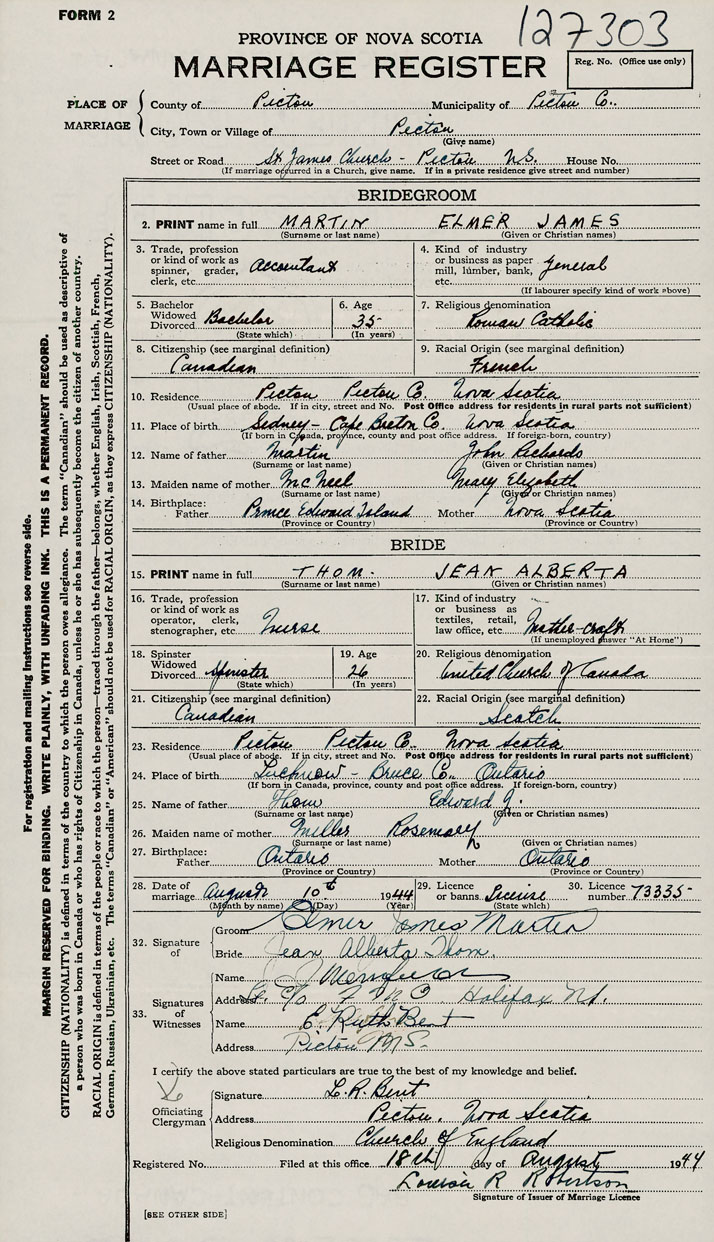 FORM 2
127303
PROVINCE OF NOVA SCOTIA
MARRIAGE REGISTER
Reg. No. (Office use only)
PLACE OF MARRIAGE
County of Pictou Municipality of Pictou Co.
City, Town or Village of Pictou
(Give name)
Street or Road St James Church - Pictou N.S. House No.
(If marriage occurred in a Church, give name. If in a private residence give street and number)
BRIDEGROOM
2. PRINT name in full MARTIN ELMER JAMES
(Surname or last name) (Given or Christian names)
3. Trade, profession or kind of work as spinner, grader, clerk, etc. Accountant
4. Kind of industry or business as paper mill, lumber, bank, etc. General
(If labourer specify kind of work above)
5. Bachelor Widowed Divorced Bachelor
(State which)
6. Age 35
(In years)
7. Religious denomination
Roman Catholic
8. Citizenship (see marginal definition)
Canadian
9. Racial Origin (see marginal definition)
French
10. Residence Pictou Pictou Co. Nova Scotia
(Usual place of abode. If in city, street and No. Post Office address for residents in rural parts not sufficient)
11. Place of birth Sydney - Cape Breton Co. Nova Scotia
(If born in Canada, province, county and post office address. If foreign-born, country)
12. Name of father Martin John Richards
(Surname or last name) (Given or Christian names)
13. Maiden name of mother McNeel Mary Elizabeth
(Surname or last name) (Given or Christian names)
14. Birthplace: Father Prince Edward Island Mother Nova Scotia
(Province or Country) (Province or Country)
BRIDE
15. PRINT name in full THOM. JEAN ALBERTA
(Surname or last name) (Given or Christian names)
16. Trade, profession or kind of work as operator, clerk, stenographer, etc. Nurse
17. Kind of industry or business as textiles, retail, law office, etc. Mother-craft
(If unemployed answer "At Home")
18. Spinster Widowed Divorced Spinster
(State which)
19. Age 26
(In years)
20. Religious denomination
United Church of Canada
21. Citizenship (see marginal definition)
Canadian
22. Racial Origin (see marginal definition)
Scotch
23. Residence Pictou Pictou Co. Nova Scotia
(Usual place of abode. If in city, street and No. Post Office address for residents in rural parts not sufficient)
24. Place of birth Lucknow - Bruce Co. Ontario
(If born in Canada, province, county and post office address. If foreign-born, country)
25. Name of father Thom Edward J.
(Surname or last name) (Given or Christian names)
26. Maiden name of mother Miller Rosemary
(Surname or last name) (Given or Christian names)
27. Birthplace: Father Ontario Mother Ontario
(Province or Country) (Province or Country)
28. Date of marriage August 10th 1944
(Month by name) (Day) (Year)
29. Licence or banns License
(State which)
30. Licence number 73335
32. Signature of
Groom Elmer James Martin
Bride Jean Alberta Thom.
33. Signatures of Witnesses
Name
Address C/o F.P.O Halifax N.S.
Name E. Ruth Bent
Address Pictou N.S.
I certify the above stated particulars are true to the best of my knowledge and belief.
Officiating Clergyman
Signature L.R. Bent
Address Pictou, Nova Scotia
Religious Denomination Church of England
Registered No. Filed at this office 18th day of August 1944
R Robertson
Signature of Issuer of Marriage Licence
[SEE OTHER SIDE]
For registration and mailing instructions see reverse side.
MARGIN RESERVED FOR BINDING. WRITE PLAINLY, WITH UNFADING INK. THIS IS A PERMANENT RECORD.
CITIZENSHIP (NATIONALITY) is defined in terms of the country to which the person owes allegiance. The term "Canadian" should be used as descriptive of
a person who was born in Canada or who has rights of Citizenship in Canada, unless he or she has subsequently become the citizen of another country.
RACIAL ORIGIN is defined in terms of the people or race to which the person—traced through the father—belongs, whether English, Irish, Scottish, French,
German, Russian, Ukrainian, etc. The terms "Canadian" or "American" should not be used for RACIAL ORIGIN, as they express CITIZENSHIP (NATIONALITY).